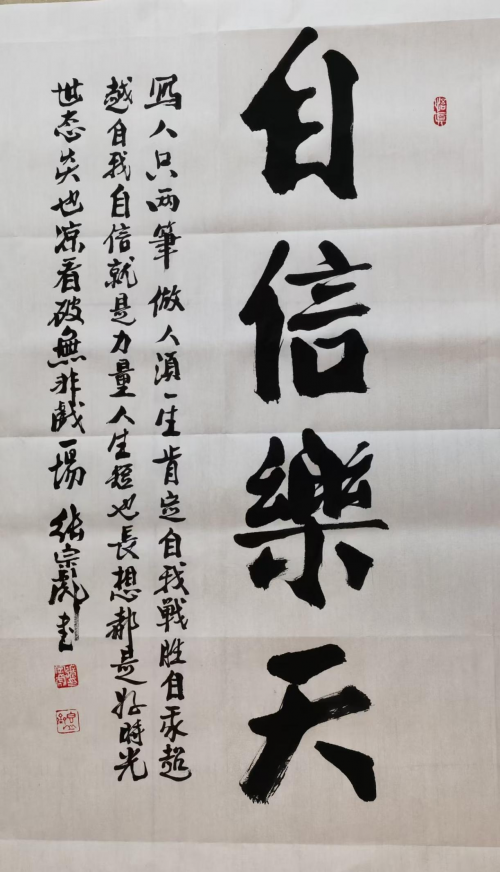 自信樂天
寫人只兩筆做人須一生肯定自我戰勝自我超
越自我自信就是力量人生短也長想都是好時光
世态炎也凉看破無非戲一場 張宗彪書